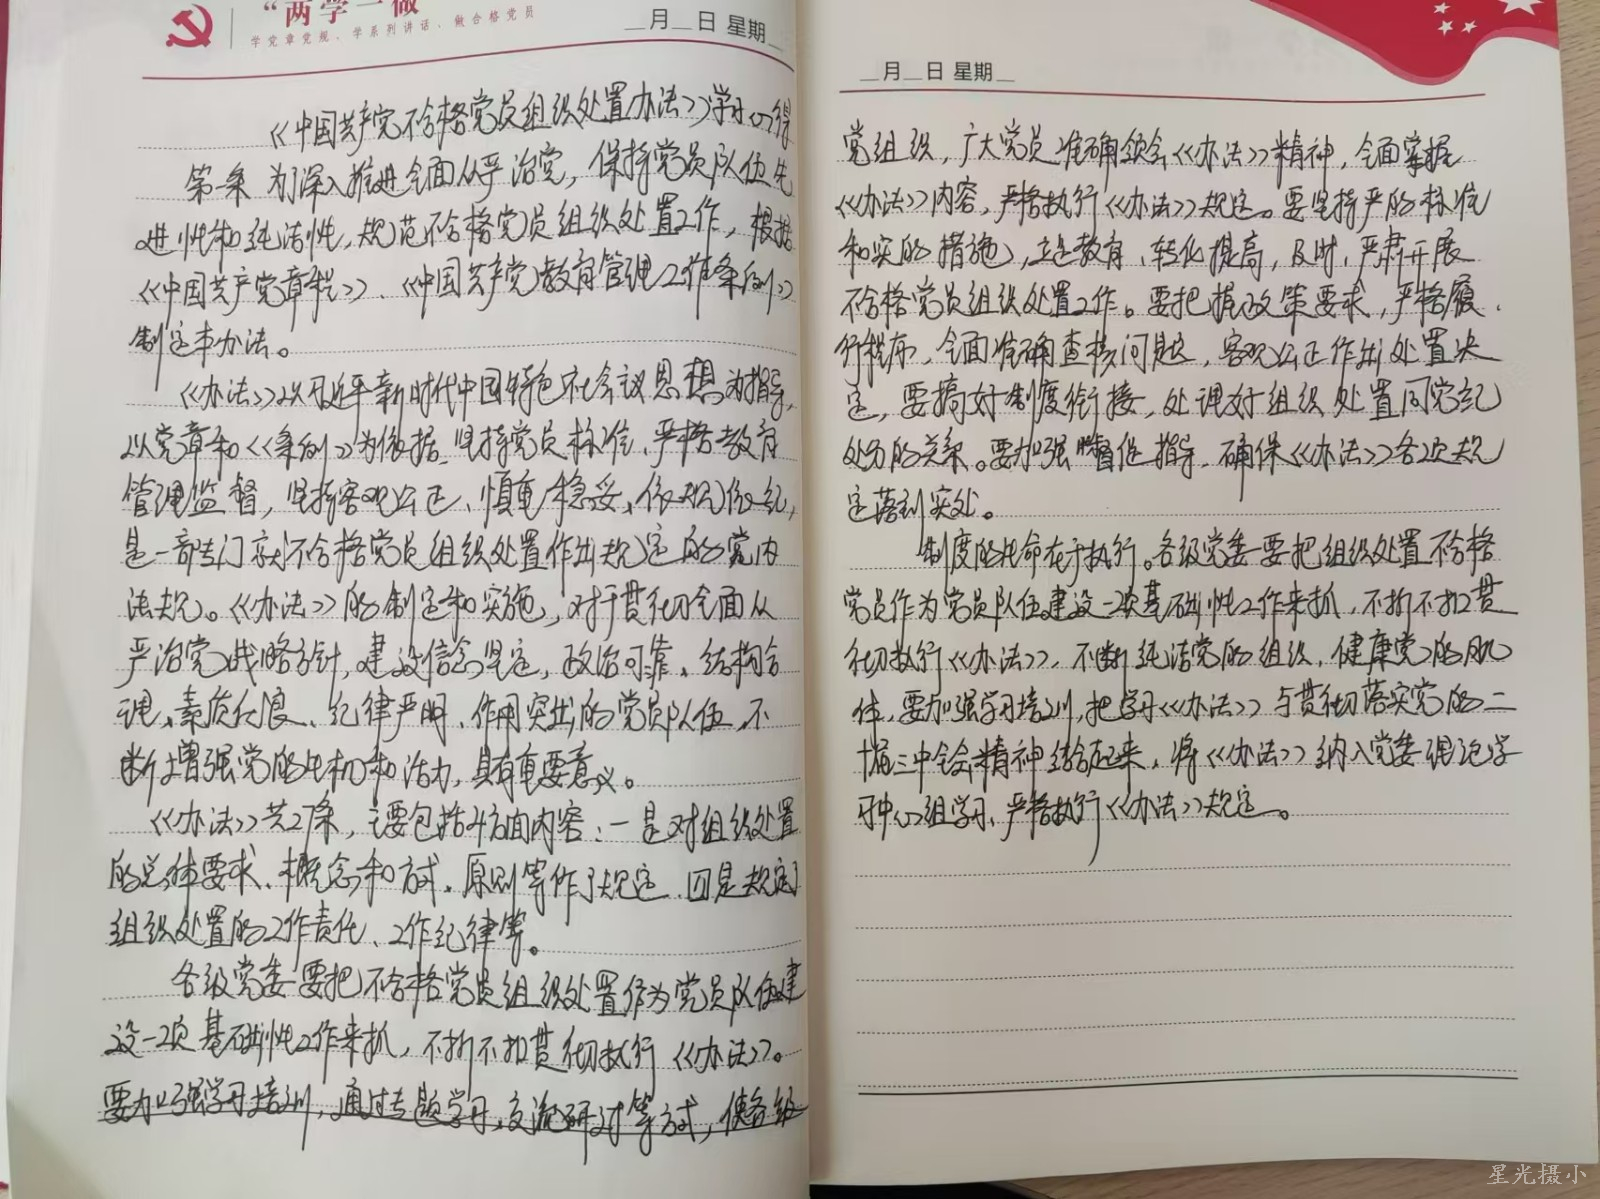 “两学一做
学党章党规、学系列讲话、做合格党员
月 日 星期
《中国共产党不合格党员组织处置办法》学习心得
第一条 为了深入推进全面从严治党，保持党员队伍先
进性和纯洁性，规范不合格党员组织处置工作，根据
《中国共产党章程》、《中国共产党教育管理工作条例》
制定本办法。
《办法》以习近平新时代中国特色社会议思想为指导，
以党章和《条例》为依据、坚持党员标准、严格教育
管理监督，坚持客观公正、慎重稳妥、依规依纪，
是一部专门就不合格党员组织处置作出规定的党内
法规。《办法》的制定和实施，对于贯彻全面从
严治党战略方针，建设信念坚定，政治可靠、结构合
理、素质优良、纪律严明、作用突出的党员队伍，不
断增强党的生机和活力，具有重要意义。
《办法》共27条，主要包括4方面内容：一是对组织处置
的总体要求、概念和方式、原则等作了规定、四是规定了
组织处置的工作责任、工作纪律等。
各级党委要把不合格党员组织处置作为党员队伍建
设一项基础性工作来抓，不折不扣贯彻执行《办法》。
要加强学习培训，通过专题学习、交流研讨等方式，使各级
月 日 星期
党组织，广大党员准确领会《办法》精神，全面掌握
《办法》内容，严格执行《办法》规定。要坚持严的标准
和实的措施，立足教育、转化提高，及时、严肃开展
不合格党员组织处置工作。要把握政策要求，严格履
行程序，全面准确查核问题，客观公正作出处置决
定，要搞好制度衔接，处理好组织处置同党纪
处分的关系。要加强督促指导，确保《办法》各项规
定落到实处。
制度的生命在于执行。各级党委要把组织处置不合格
党员作为党员队伍建设一项基础性工作来抓，不折不扣贯
彻执行《办法》，不断纯洁党的组织，健康党的肌
体，要加强学习培训，把学习《办法》与贯彻落实党的二
十届三中全会精神结合起来，将《办法》纳入党委理论学
习中心组学习、严格执行《办法》规定。
星光摄小